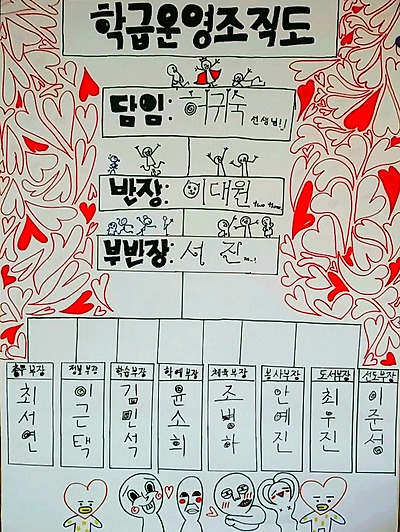 학급운영조직도
담임: 어귀숙 선생님!
반장: 이대원
부반장: 서진
총무부장 정보부장 학습부장 학예부장 체육부장 봉사부장 도서부장 선도부장
최서연 이근택 김민석 윤소희 조병하 안예진 최우진 이준성